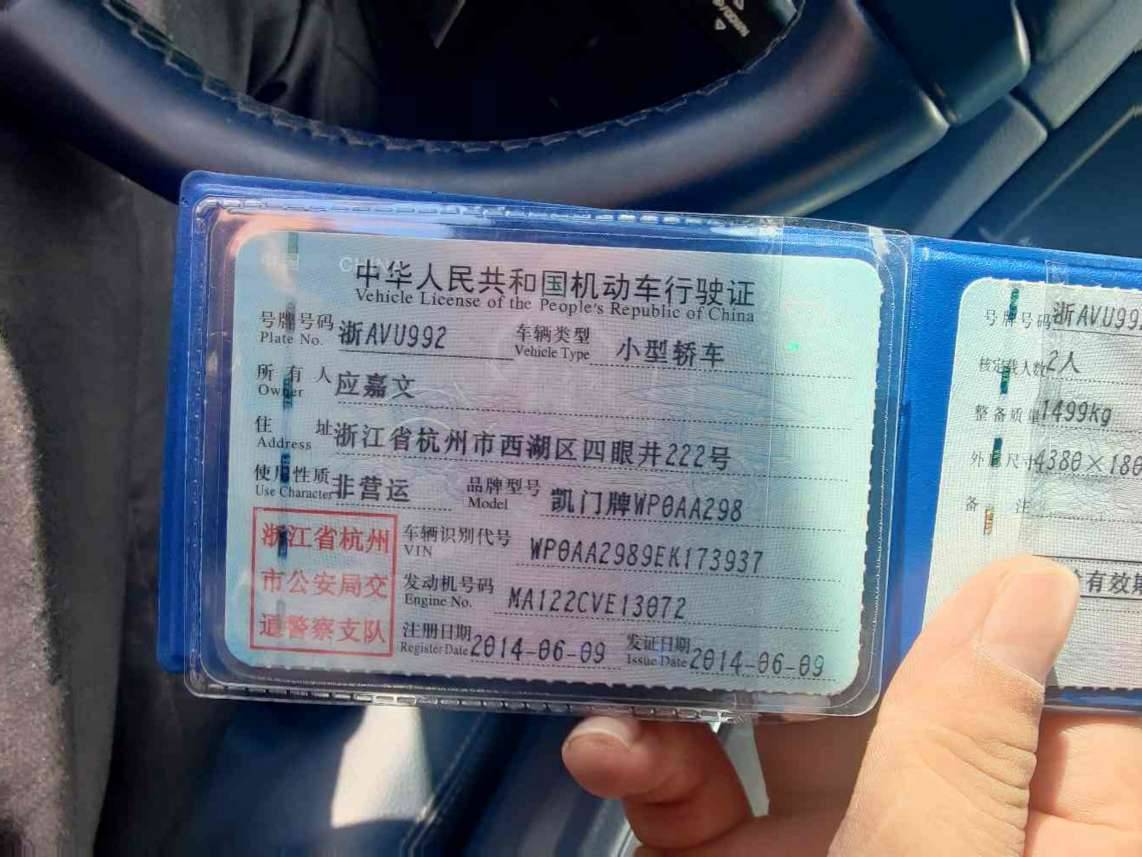 CHIN
中华人民共和国机动车行驶证
Vehicle License of the People's Republic of China
号牌号码 浙AVU992 车辆类型 小型轿车
Plate No. Vehicle Type
所有人 应嘉文
Owner
住址 浙江省杭州市西湖区四眼井222号
Address
使用性质 非营运 品牌型号 凯门牌WP0AA298
Use Character Model
浙江省杭州
市公安局交
通警察支队
车辆识别代号 WP0AA2989EK173937
VIN
发动机号码 MA122CVE13072
Engine No.
注册日期 2014-06-09 发证日期 2014-06-09
Register Date Issue Date
号牌号码 浙AVU99
核定载人数 2人
整备质量 1499kg
外廓尺寸 4380×180
备注
有效